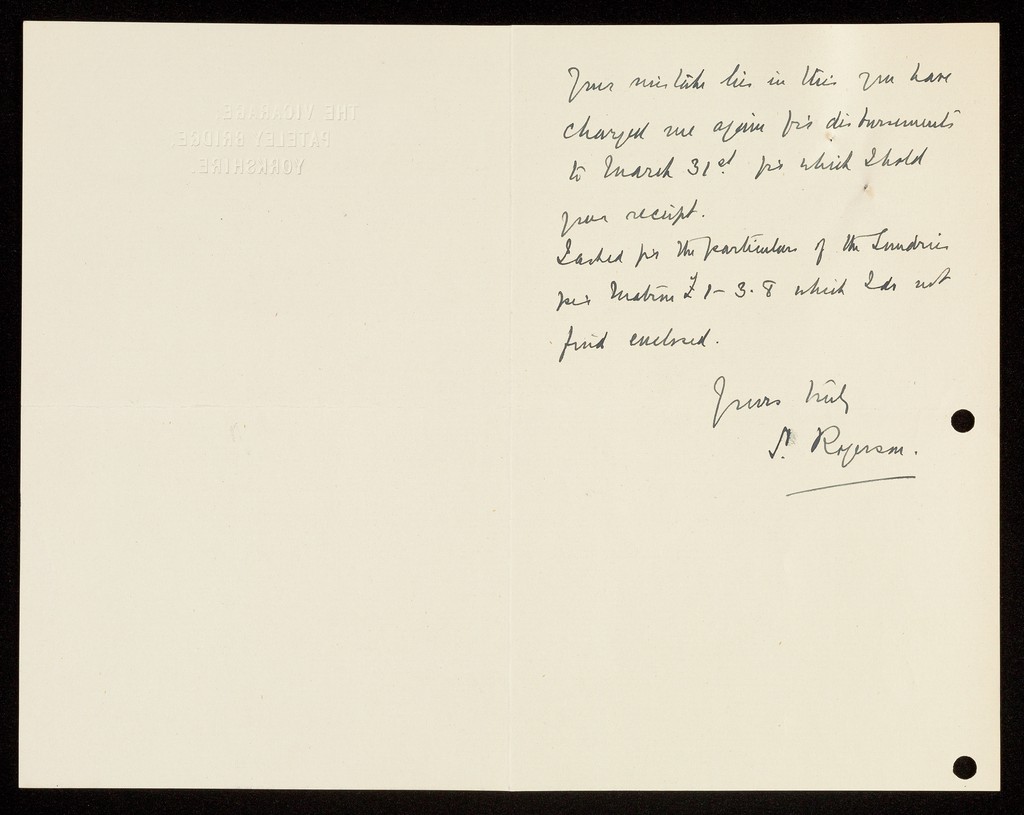 THE VICARAGE.
PATELEY BRIDGE.
YORKSHIRE.
Your mistake lies in this you have
charged me again for disbursements
to March 31st. for which I hold
your receipt.
I asked for the particulars of the Sundries
per Matron £1-3.8 which I do not
find enclosed.
Yours truly
S. Rogerson.